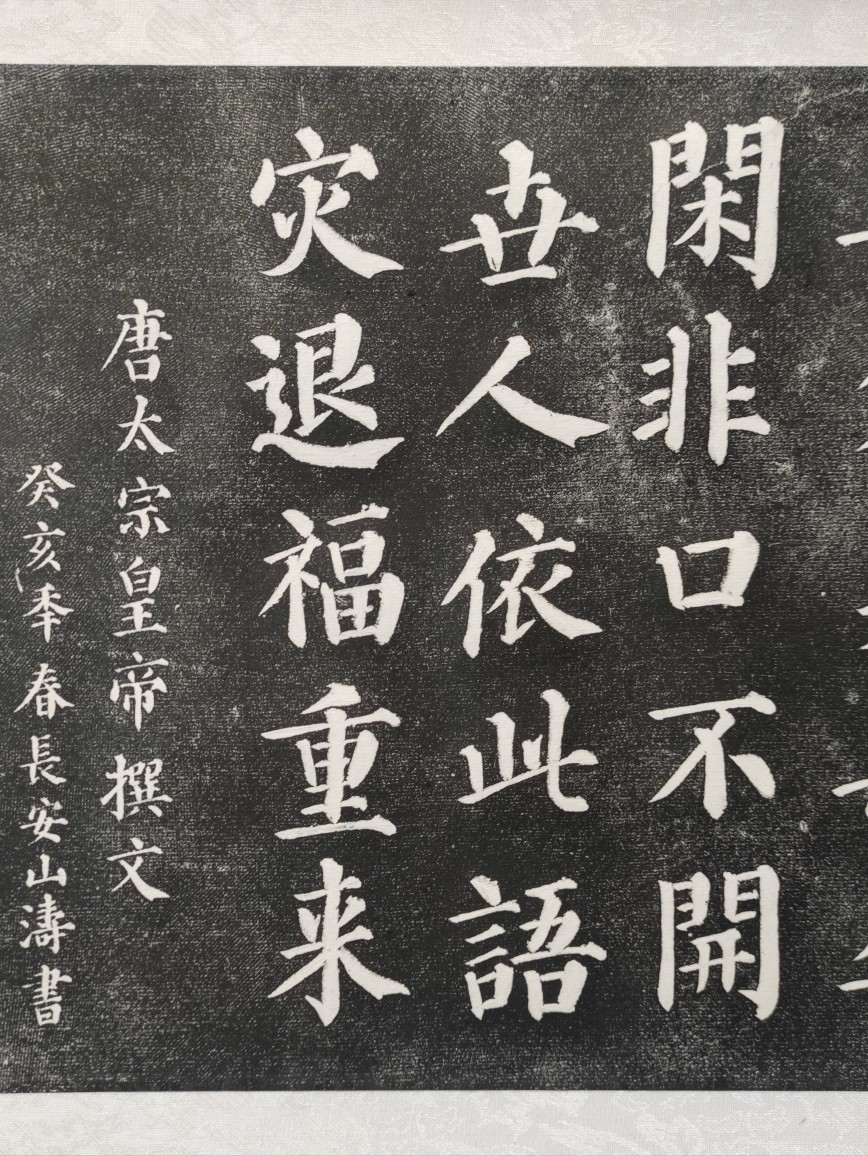 閑非口不開
世人依此語
灾退福重来
唐太宗皇帝撰文
癸亥年春長安山濤書